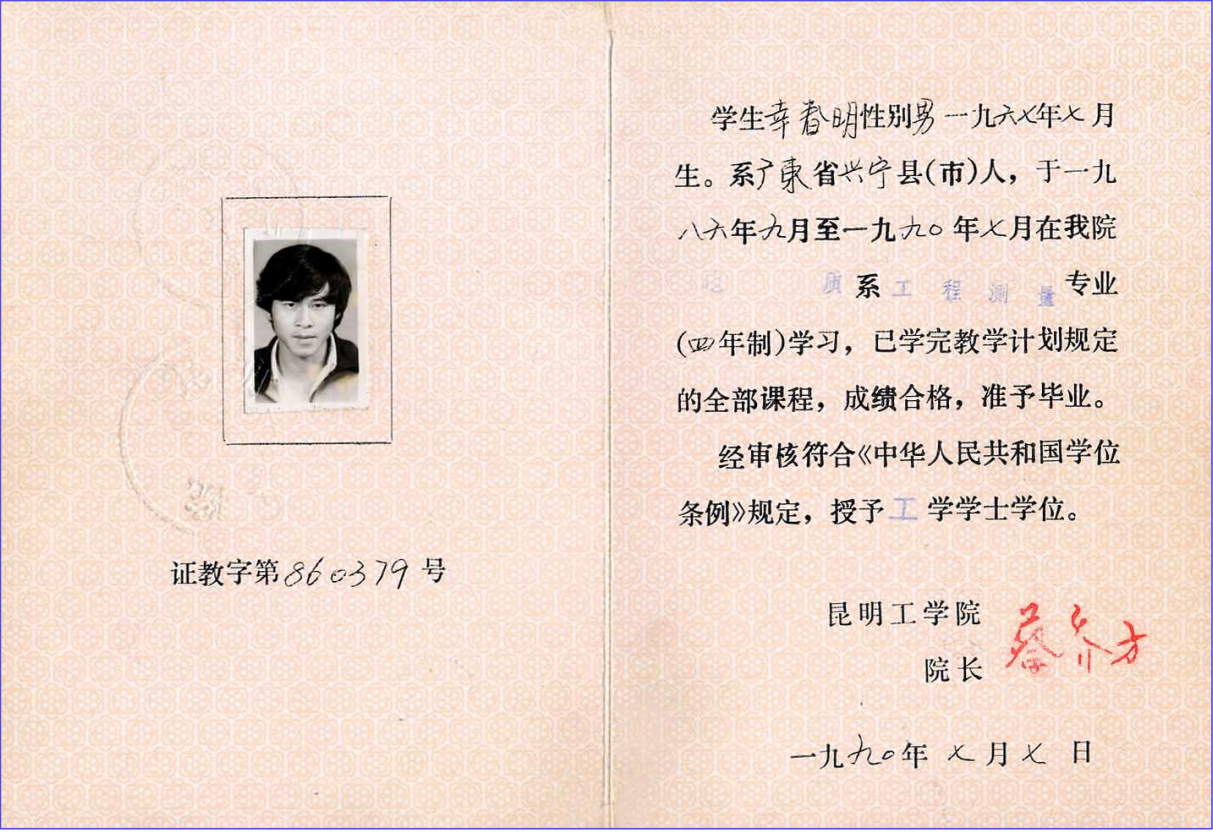 证教字第860379号
学生幸春明性别男一九六七年七月
生。系广东省兴宁县(市)人，于一九
八六年九月至一九九〇年七月在我院
地质系工程测量专业
(四年制)学习，已学完教学计划规定
的全部课程，成绩合格，准予毕业。
经审核符合《中华人民共和国学位
条例》规定，授予工学学士学位。
昆明工学院
院长 蔡乔方
一九九〇年七月七日